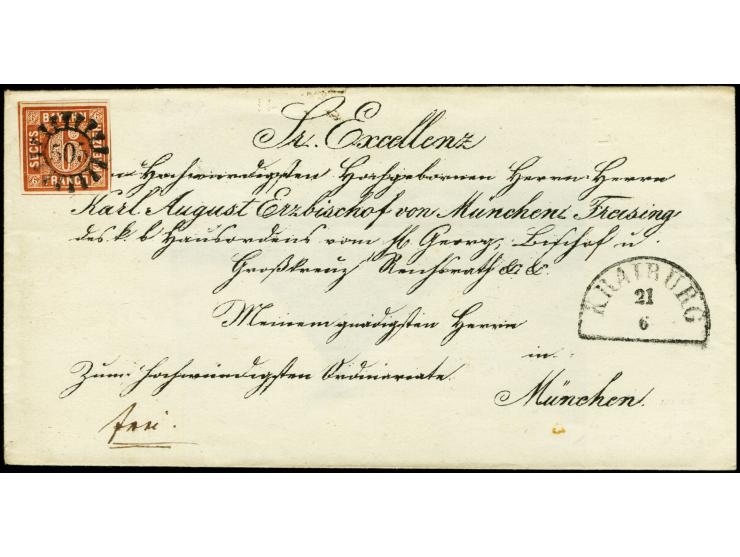 BAYERN
SECHS
6
505
Sr. Excellenz
Hochwürdigsten Hochgebornen Herrn Herrn
Karl August Erzbischof von München Freising
des k. b. Hausordens vom hl. Georg, Bischof u.
Großkreuz Reichsrath &. &.
Meinem gnädigsten Herrn
in
Zum hochwürdigsten Ordinariate.
München.
frei.
KRAIBURG
21
6